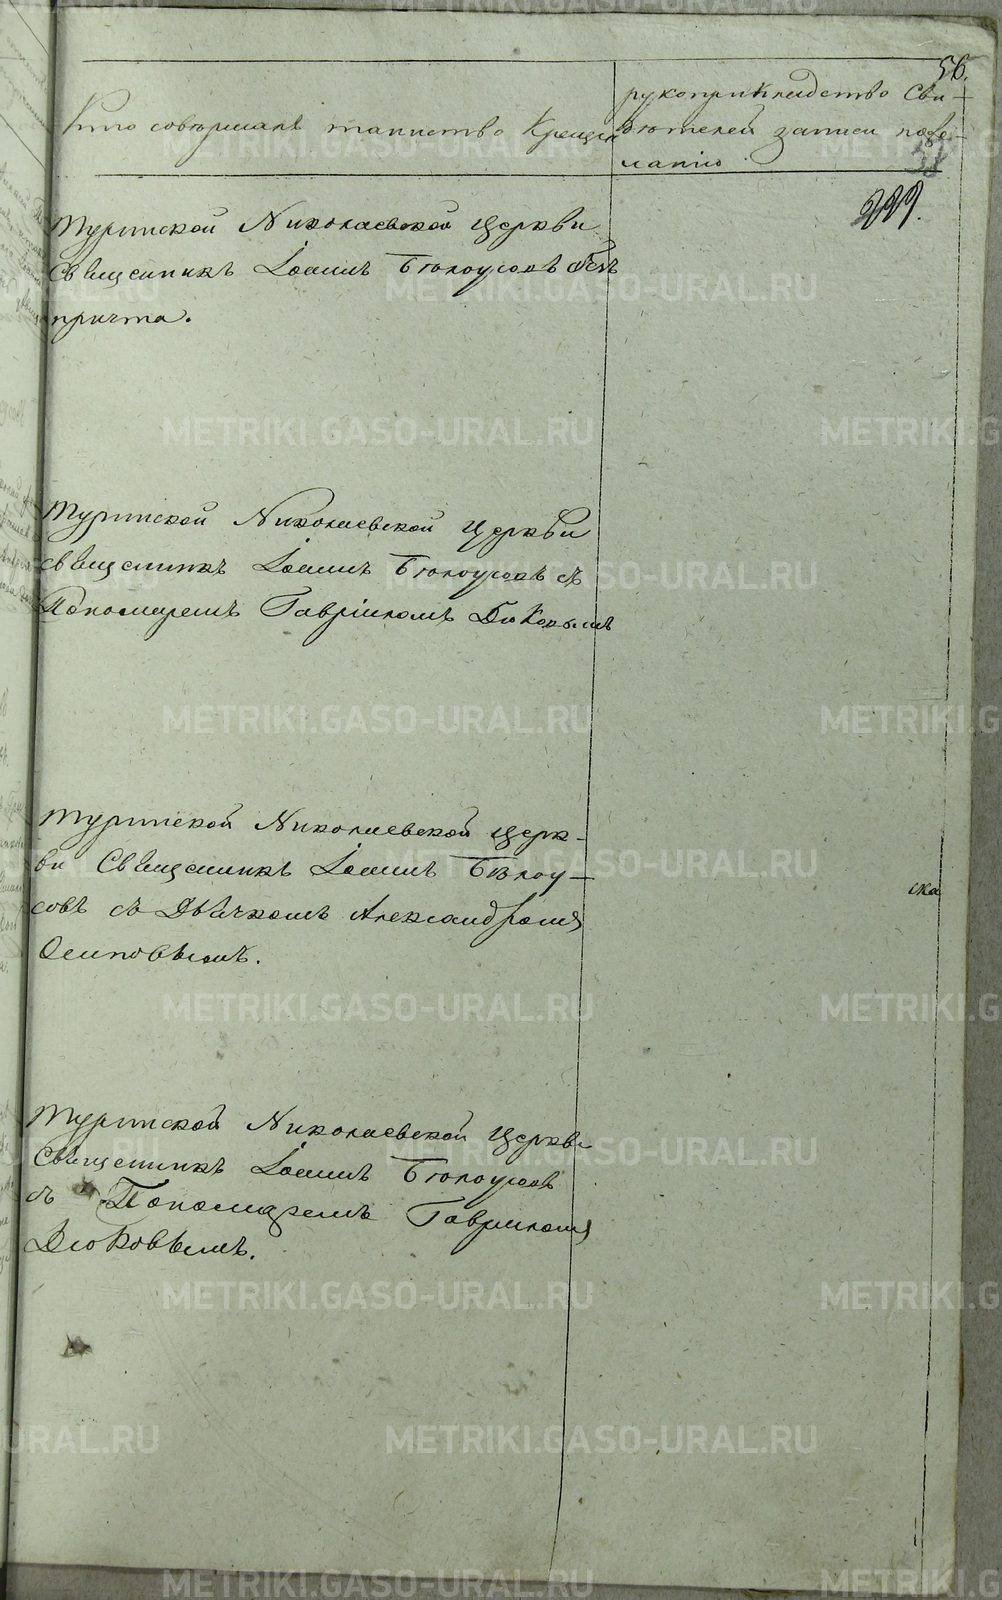 56.
Кто совершалъ таинство Крещен
рукоприкладство Сви-
дѣтелей записи поже-
ланію.
38
222.
Туринской Николаевской Церкви
Священникъ Іоаннъ Бѣлоусовъ безъ
причта.
Туринской Николаевской Церкви
священникъ Іоаннъ Бѣлоусовъ съ
Пономаремъ Гавріиломъ Дюковымъ
Туринской Николаевской Церк-
ви Священникъ Іоаннъ Бѣлоу-
совъ съ Дьячкомъ Александромъ
Осиповымъ.
ска
Туринской Николаевской Церкви
Священникъ Іоаннъ Бѣлоусовъ
съ Пономаремъ Гавриломъ
Дюковымъ.
METRIKI.GASO-URAL.RU